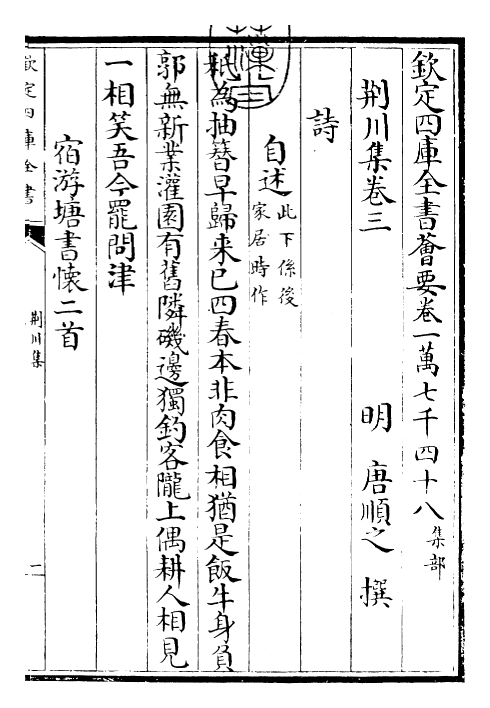 欽定四庫全書薈要卷一萬七千四十八 集部
荆川集卷三
明 唐順之 撰
詩
自述 此下係後家居時作
秖為抽簪早歸来已四春本非肉食相猶是飯牛身負
郭無新業灌園有舊隣磯邊獨釣客隴上偶耕人相見
一相笑吾今罷問津
宿游塘書懷二首
欽定四庫全書
荆川集
二